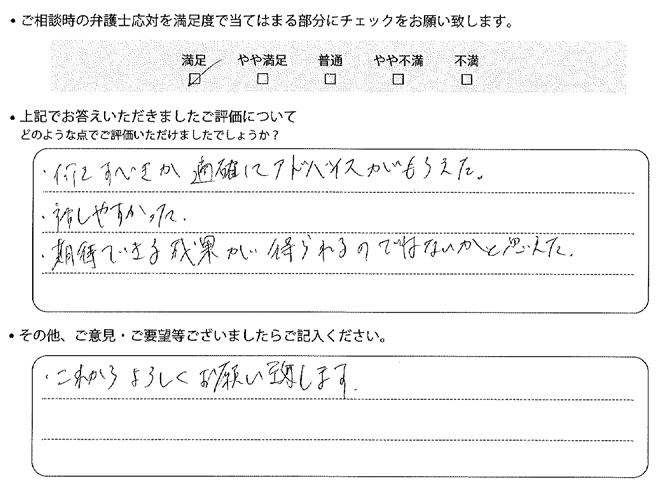 • ご相談時の弁護士応対を満足度で当てはまる部分にチェックをお願い致します。
満足 やや満足 普通 やや不満 不満
• 上記でお答えいただきましたご評価について
どのような点でご評価いただけましたでしょうか？
・何をすべきか適確にアドバイスがもらえた。
・話しやすかった。
・期待できる成果が得られるのではないかと思えた。
• その他、ご意見・ご要望等ございましたらご記入ください。
・これからよろしくお願い致します。